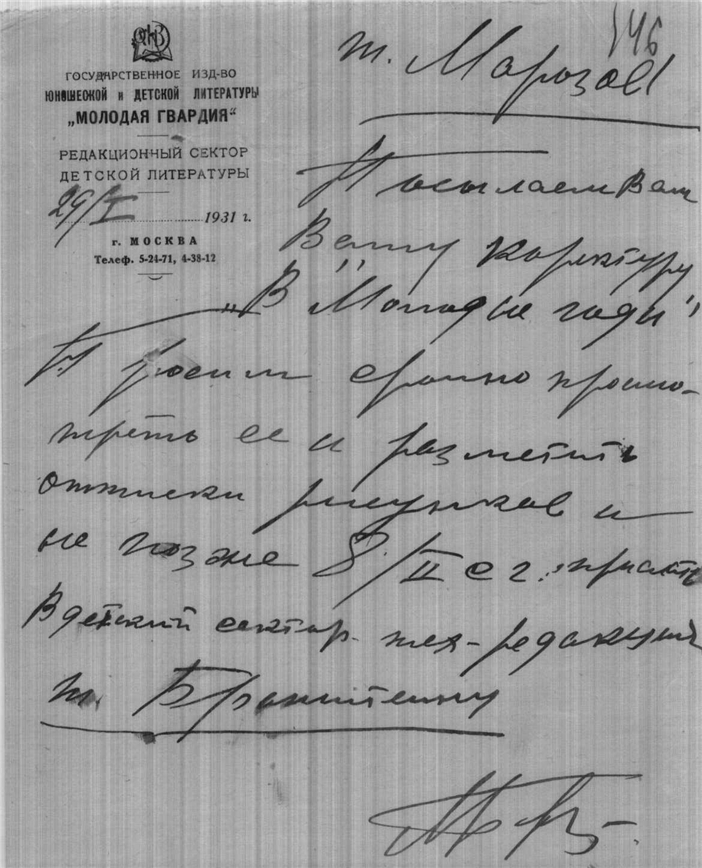 146
ГОСУДАРСТВЕННОЕ ИЗД-ВО
ЮНОШЕСКОЙ и ДЕТСКОЙ ЛИТЕРАТУРЫ
„МОЛОДАЯ ГВАРДИЯ“
РЕДАКЦИОННЫЙ СЕКТОР
ДЕТСКОЙ ЛИТЕРАТУРЫ
29/I 1931 г.
г. МОСКВА
Телеф. 5-24-71, 4-38-12
т. Марозов
Посылаем Вам
Вашу коректуру
„В "Молодые годы"
Просим срочно просмо-
треть ее и разметить
оттиски рисунков и
не позже 8/II с г. прислать
В детский сектор тех-редакции
т Бронштейну